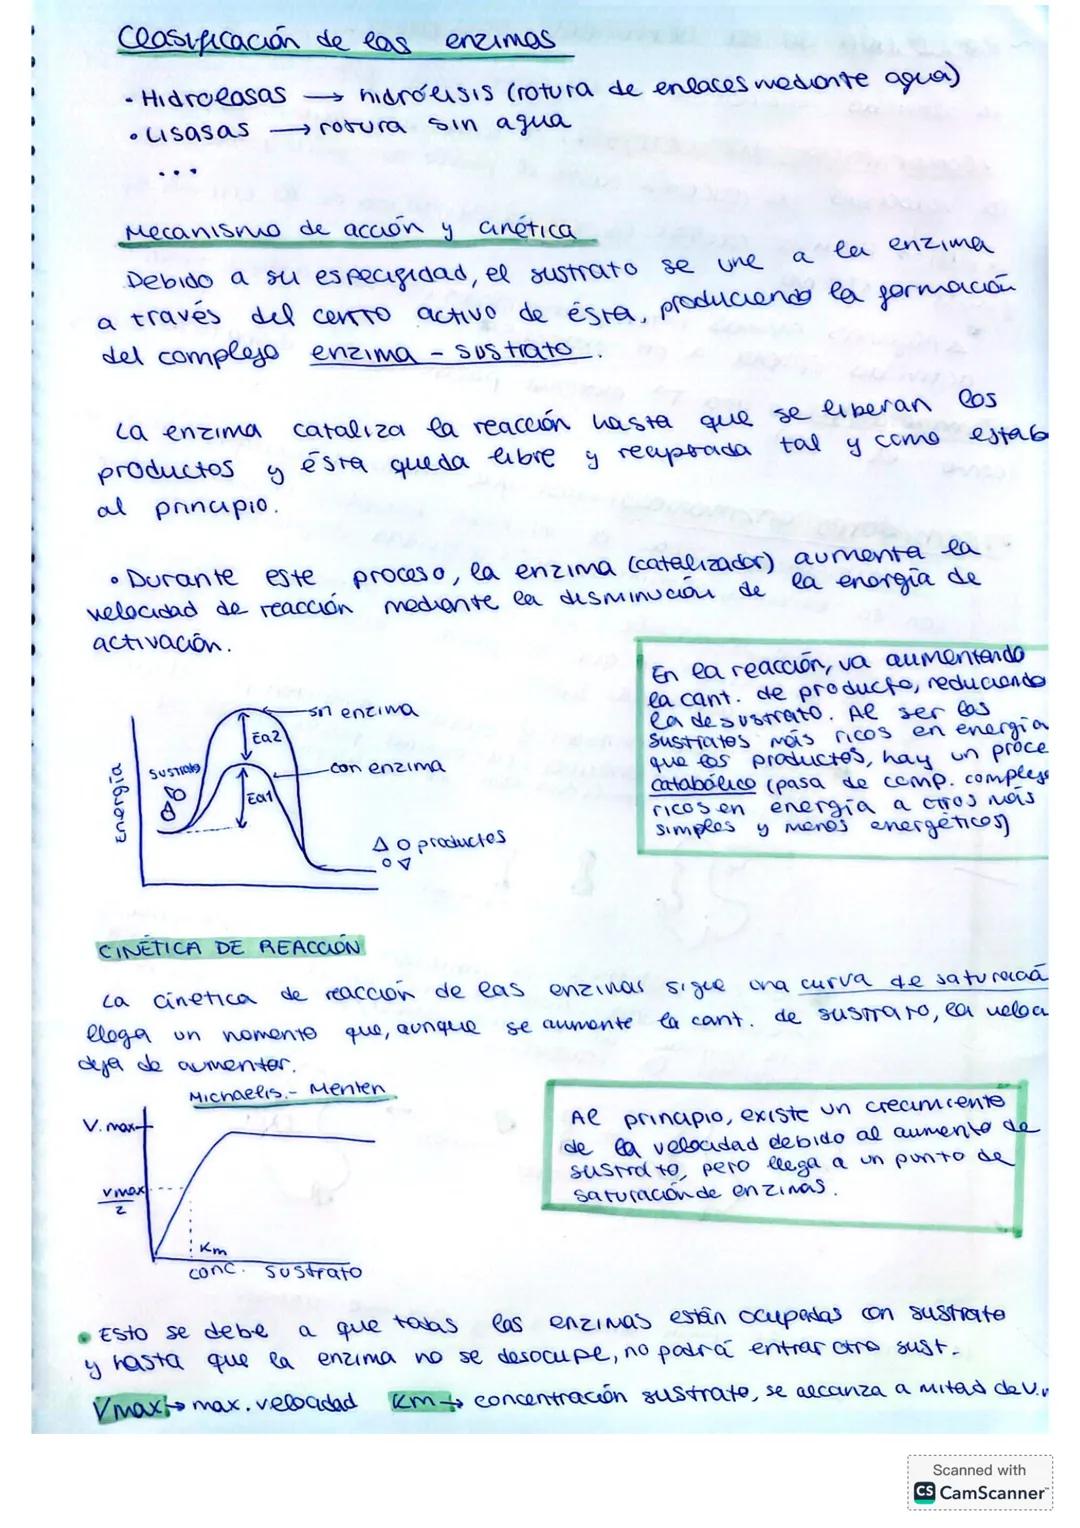 Clasificación de las enzimas
• Hidrolasas → hidrólisis (rotura de enlaces mediante agua)
• Lisasas → rotura sin agua
...
Mecanismo de acción y cinética
Debido a su especifidad, el sustrato se une a la enzima
a través del centro activo de ésta, produciendo la formación
del complejo enzima - sustrato.
La enzima cataliza la reacción hasta que se liberan los
productos y ésta queda libre y recuperada tal y como estab
al principio.
• Durante este proceso, la enzima (catalizador) aumenta la
velocidad de reacción mediante la disminución de la energía de
activación.
En la reacción, va aumentando
la cant. de producto, reduciendo
la de sustrato. Al ser los
sustratos más ricos en energía
que los productos, hay un proce
catabólico (pasa de comp. complejo
ricos en energía a otros más
simples y menos energéticos)
energía
sustrato
sin enzima
Ea2
con enzima
Ea1
productos
CINÉTICA DE REACCIÓN
La cinética de reacción de las enzimas sigue una curva de saturació
llega un momento que, aunque se aumente la cant. de sustrato, la veloc
deja de aumentar.
Michaelis - Menten
V. max
Vmax
2
Km
conc. sustrato
Al principio, existe un crecimiento
de la velocidad debido al aumento de
sustrato, pero llega a un punto de
saturación de enzimas.
• Esto se debe a que todas las enzimas están ocupadas con sustrato
y hasta que la enzima no se desocupe, no podrá entrar otro sust.
Vmax → max. velocidad Km → concentración sustrato, se alcanza a mitad de V.m
Scanned with
CS CamScanner